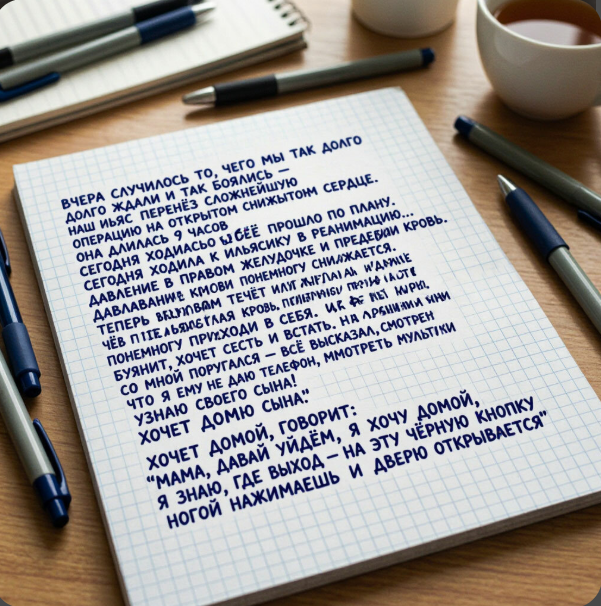 ВЧЕРА СЛУЧИЛОСЬ ТО, ЧЕГО МЫ ТАК ДОЛГО
ДОЛГО ЖДАЛИ И ТАК БОЯЛИСЬ —
НАШ ИЬЯС ПЕРЕНЁЗ СЛОЖНЕЙШУЮ
ОПЕРАЦИЮ НА ОТКРЫТОМ СНИЖЫТОМ СЕРДЦЕ.
ОНА ДЛИЛАСЬ 9 ЧАСОВ
СЕГОДНЯ ХОДИАСЬО ПРОШЛО ПО ПЛАНУ.
СЕГОДНЯ ХОДИЛА К ИЛЬЯСИКУ В РЕАНИМАЦИЮ...
ДАВЛЕНИЕ В ПРАВОМ ЖЕЛУДОЧКЕ И КРОВЬ.
ДАВЛАВАНИЕ КМОВИ ПОНЕМНОГУ СНИЖАЕТСЯ.
ТЕПЕРЬ ТЕЧЁТ
ЧЁВ КРОВЬ,
ПОНЕМНОГУ ПРИХОДИ В СЕБЯ.
БУЯНИТ, ХОЧЕТ СЕСТЬ И ВСТАТЬ. НА
СО МНОЙ ПОРУГАЛСЯ — ВСЁ ВЫСКАЗАЛ, СМОТРЕН
ЧТО Я ЕМУ НЕ ДАЮ ТЕЛЕФОН, ММОТРЕТЬ МУЛЬТІКИ
УЗНАЮ СВОЕГО СЫНА!
ХОЧЕТ ДОМЮ СЫНА"
ХОЧЕТ ДОМОЙ, ГОВОРИТ:
"МАМА, ДАВАЙ УЙДЁМ, Я ХОЧУ ДОМОЙ,
Я ЗНАЮ, ГДЕ ВЫХОД — НА ЭТУ ЧЁРНУЮ КНОПКУ
НОГОЙ НАЖИМАЕШЬ И ДВЕРЮ ОТКРЫВАЕТСЯ"